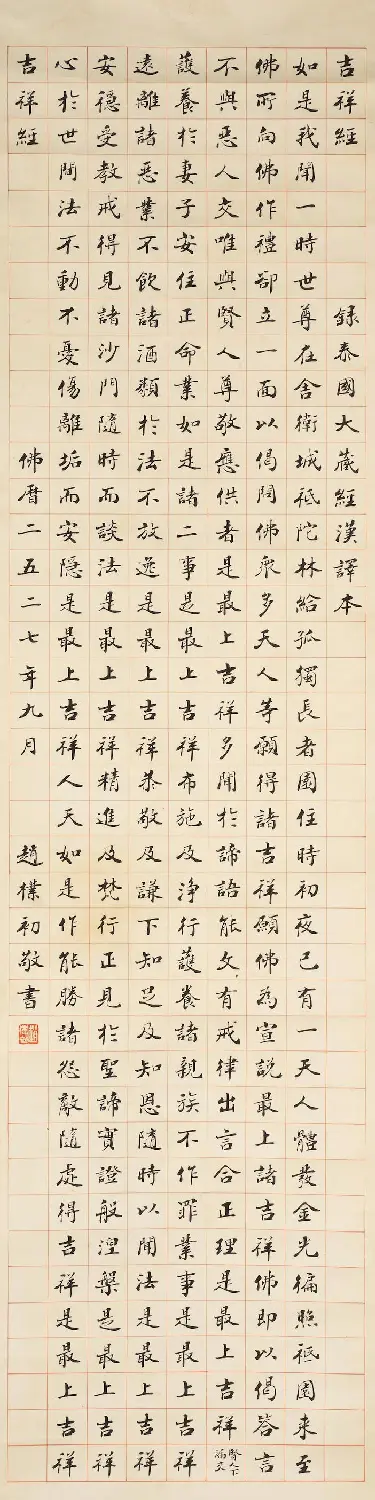 吉祥經 錄泰國大藏經漢譯本
如是我聞一時世尊在舍衛城祇陀林給孤獨長者園住時初夜已有一天人體發金光徧照祇園來至
佛所向佛作禮卻立一面以偈問佛衆多天人等願得諸吉祥願佛為宣說最上諸吉祥佛即以偈答言
不與惡人交唯與賢人尊敬應供者是最上吉祥多聞於諦語能文有戒律出言合正理是最上吉祥 賢人下補交
護養於妻子安住正命業如是諸二事是最上吉祥布施及淨行護養諸親族不作罪業事是最上吉祥
遠離諸惡業不飲諸酒類於法不放逸是最上吉祥恭敬及謙下知足及知恩隨時以聞法是最上吉祥
安穩受教戒得見諸沙門隨時而談法是最上吉祥精進及梵行正見於聖諦實證般涅槃是最上吉祥
心於世間法不動不憂傷離垢而安隱是最上吉祥人天如是作能勝諸怨敵隨處得吉祥是最上吉祥
吉祥經 佛曆二五二七年九月 趙樸初敬書